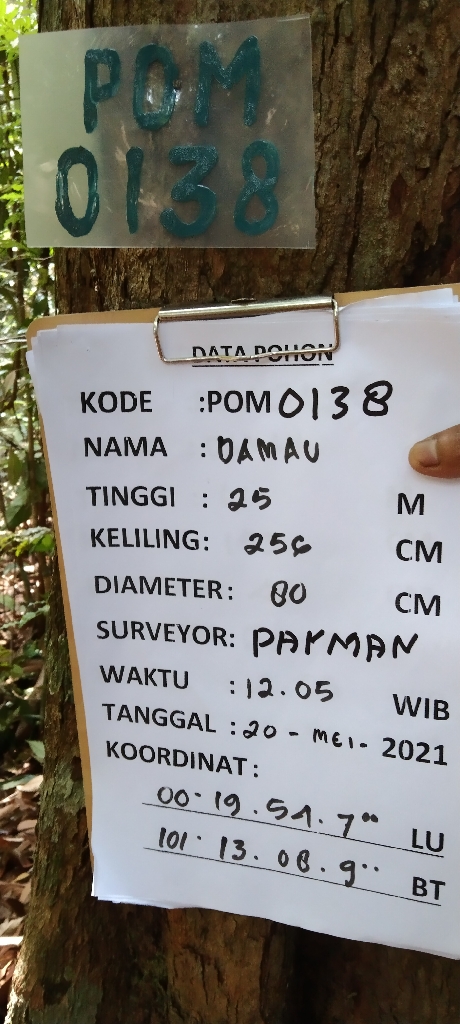 POM
0138
DATA POHON
KODE :POM 0138
NAMA : DAMAU
TINGGI : 25 M
KELILING: 256 CM
DIAMETER: 80 CM
SURVEYOR: PAYMAN
WAKTU : 12.05 WIB
TANGGAL : 20 - MEI - 2021
KOORDINAT:
00· 19. 54. 7" LU
101· 13. 08. 9" BT